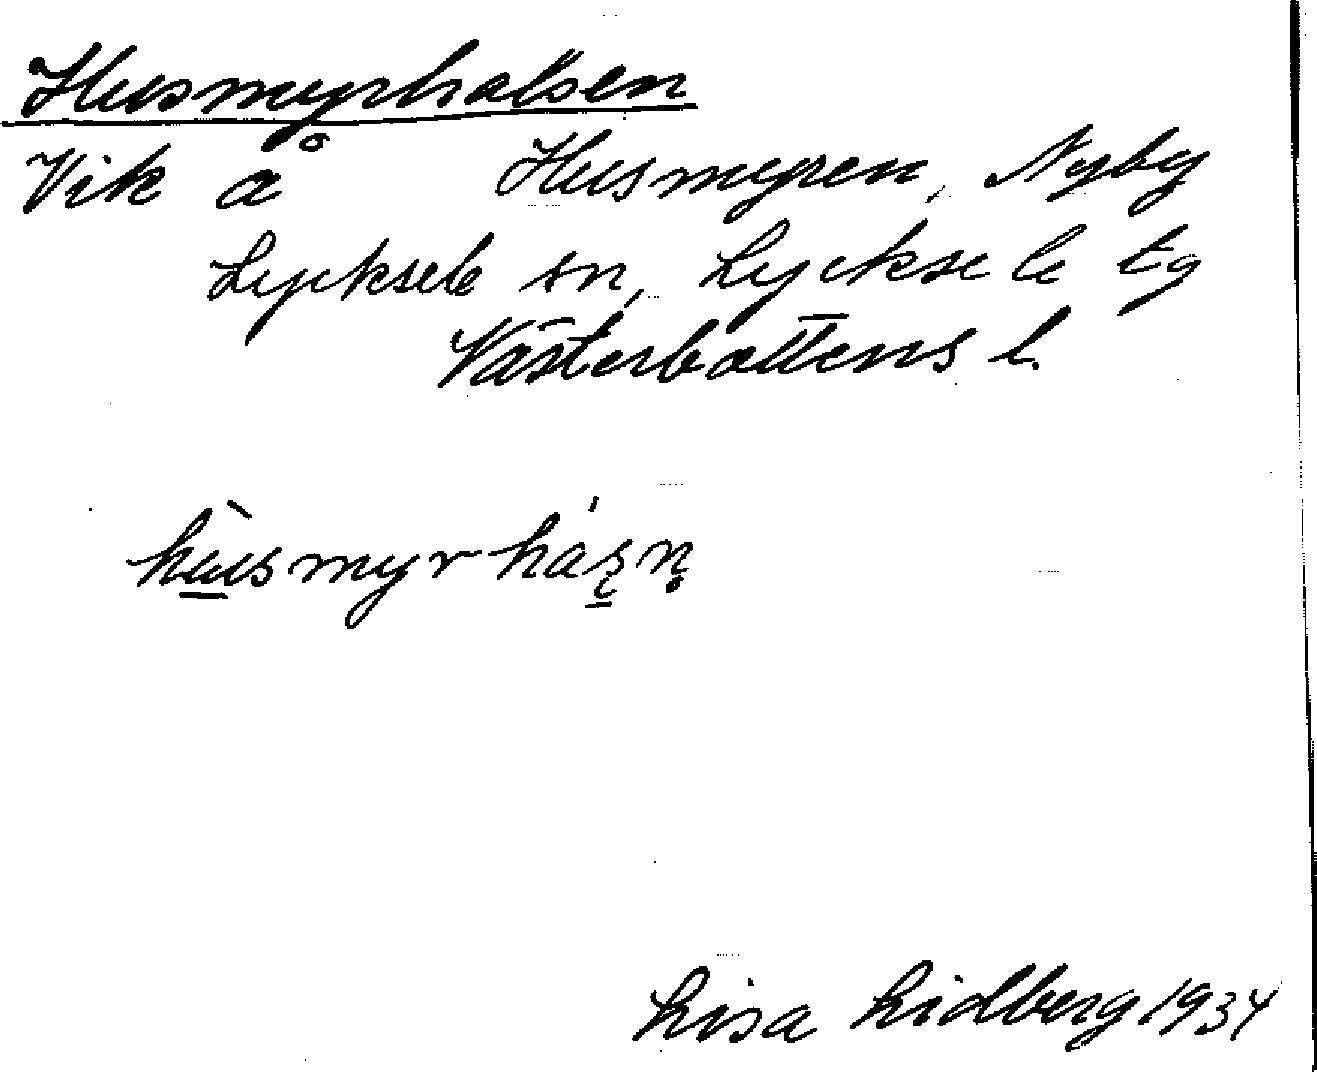 Husmyrhalsen
Vik å Husmyren, Nyby
Lycksele sn, Lycksele tg
Västerbottens l.
hùsmyrhásn
Lisa Lidberg 1934